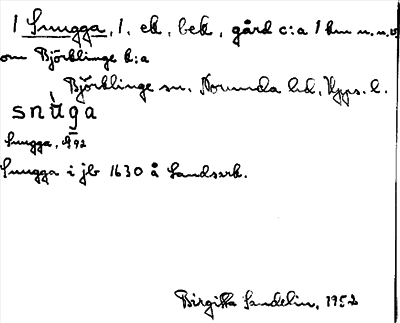 1 Snugga, 1. ek, bek, gård c:a 1 km n.n.v
om Björklinge k:a
Björklinge sn. Norunda hd, Upps. l.
snùga
Snugga, 92
Snugga i jb 1630 å Landsark.
Birgitta Sandelin, 1952